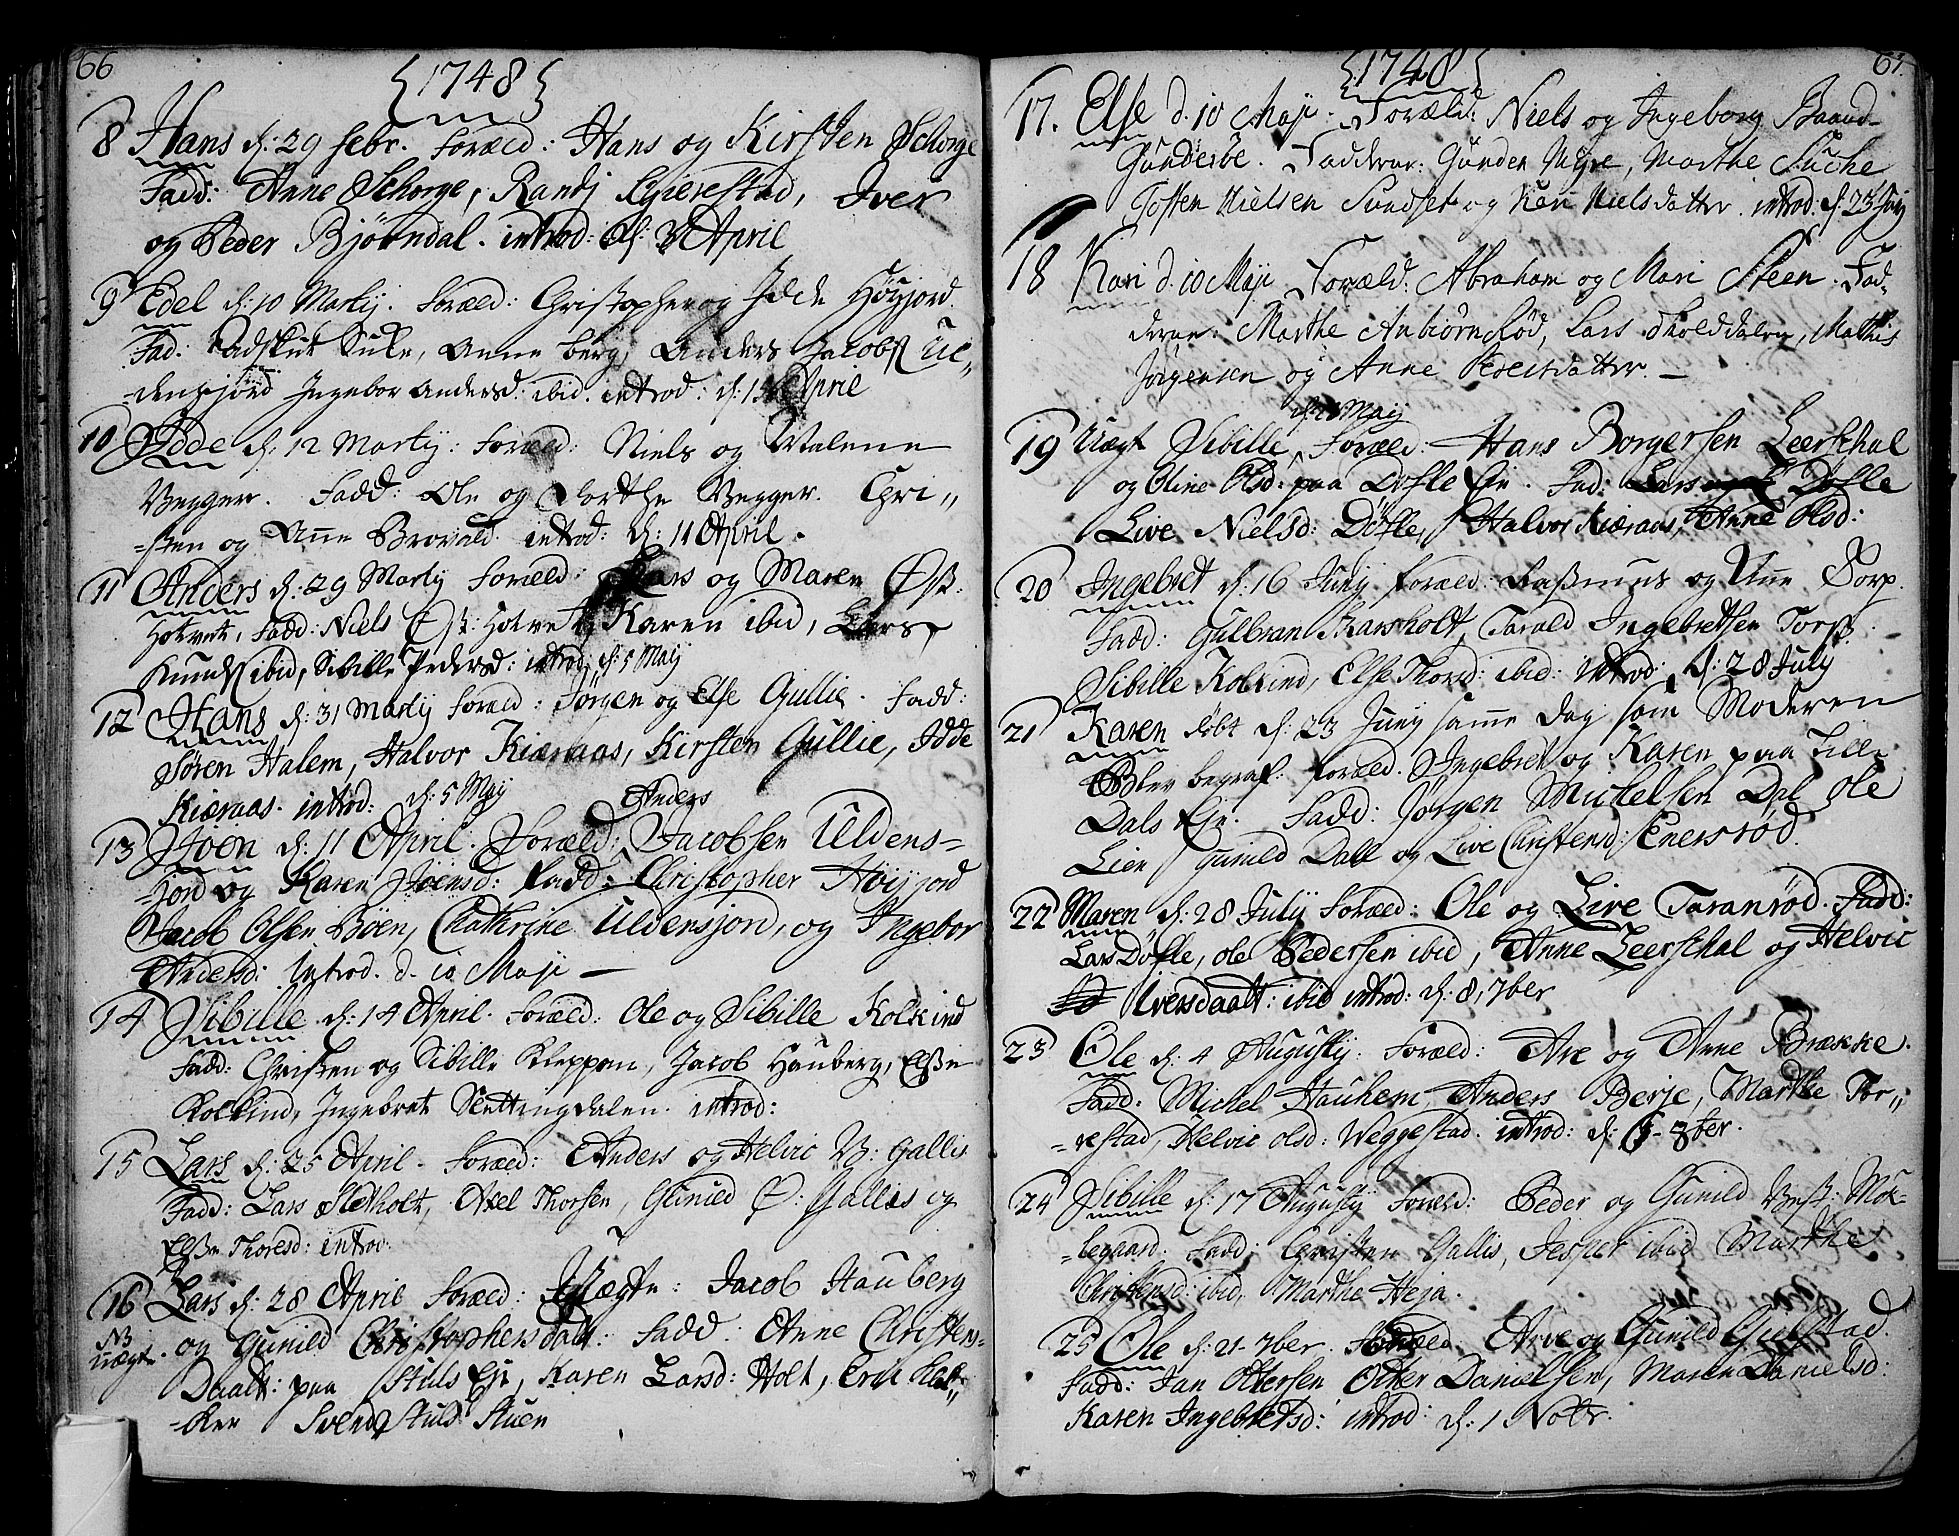 66
{1748}
8 Hans d: 29 febr. Foræld: Hans og Kirsten Schorge
Fadd: Anne Schorge, Randj Gierestad, Iver
og Peder Bjørndal. introd: d: April
9 Edel d: 10 Martij. Foræld: Christopher og Idde Høyjord
Fad: Sule, Anne Berg, Anders Jacobs Ul-
-densjord Ingebor Andersd: ibid. introd: d: April
10 Idde d: 12 Martij: Foræld: Niels og Malene
Vegger. Fadd: Ole og Dorthe Vegger. Chri-
-sten og Anne Brovald. introd: d: 11 April.
11 Anders d: 29 Martij Foræld: Lars og Maren
Hotvet, Fadd: Niels Hotvet, Karen ibid, Lars
Knuds ibid, Sibille Pedersd: introd: d: 5 Maij
12 Hans d: 31 Martij Foræld: Jørgen og Else Gullie. Fadd:
Søren Halem, Halvor Kiæraas, Kirsten Gullie, Idde
Kiæraas. introd: d: 5 Maij
Anders
13 Joen d: 11 April. Foræld: Jacobsen Uldens-
-jord og Karen Joensd: Fadd: Christopher Høijjord
Jacob Olsen Bøen, Chathrine Uldensjord, og Ingebor
Andersd: Introd. d. 10 Maji —
14 Sibille d: 14 April. Foræld: Ole og Sibille Kolkind
Fadd: Christen og Sibille Kleppan, Jacob Hauberg, Else
Kolkind, Ingebret Slettingdalen. introd:
15 Lars d: 25 April. Foræld: Anders og Helvic Gallis
Fadd: Lars Sletholt, Axel Thorsen, Gunild Gallis og
Else Thoresd: introd.
16 Lars d: 28 April Foræld: Jacob Hauberg
NB Uægte. og Gunild Christophersdatt: Fadd: Anne Christens-
Daatt: paa Stuls Eje, Karen Larsd: Holt, Erik
-ker Svend Stuls Stuen
{1748}
17. Else d. 10 Maji. Foræld: Niels og Ingeborg Baand-
Gunderøe. Fadderne: Gunder Myre, Marthe Suche
Tosten Nielsen Sundset og Kari Nielsdatter. introd: d: 23 Junij
18 Kari d. 10 Maji Foræld: Abraham og Mari Steen. Fad-
derne: Marthe Anbiørnsrød, Lars dholddalen, Mathis
Jørgensen og Anne Pedersdatter. —
Maij
19 Uægt Sibille, Foræld: Hans Borgersen Leerschal
og Oline Olsd: paa Døfle Eje. Fad: Døfle
Live Nielsd: Døfle, Halvor Kiæraas, Anne Olsd:
20 Ingebret d: 16 Junij Foræld: Rasmus og Anne Torp.
Fadd: Gulbran Skarsholt, Tarald Ingebretsen Torp
Sibille Kolkind, Else Thorsd: ibid: introd: d: 28 July
21 Karen døbt d: 23 Junij samme Dag som Moderen
Blev begraf: foræld. Ingebret og Karen paa Lille
Dals Eje. Fadd: Jørgen Michelsen Dal Ole
Lien, Gunild Dall og Live Christensd: Enersrød.
22 Maren d: 28 July Foræld: Ole og Live Taranrød. Fadd:
Lars Døfle, Ole Pedersen ibid, Anne Leerschal og Helvic
Iversdaatt: ibid introd: d: 8, 7ber
23 Ole d: 4 Augustij: Foræld: Are og Anne Brække.
Fadd: Michel Hauhem, Anders Berje, Marthe Tor-
-restad, Helvic Olsd: Weggestad. introd: d: 6 - 8ber.
24 Sibille d: 17 Augustij Foræld: Peder og Gunild Møk-
-legaard. Fadd: Christen Gallis, Jesper ibid Marthe
Christensd: ibid, Marthe Heja.
25 Ole d: 21-7ber. Foræld: Arve og Gunild
Fadd: Jan Ottersen Otter Danielsen, Maren Danielsd:
Karen Ingebretsd: introd: d: 1 Novbr.